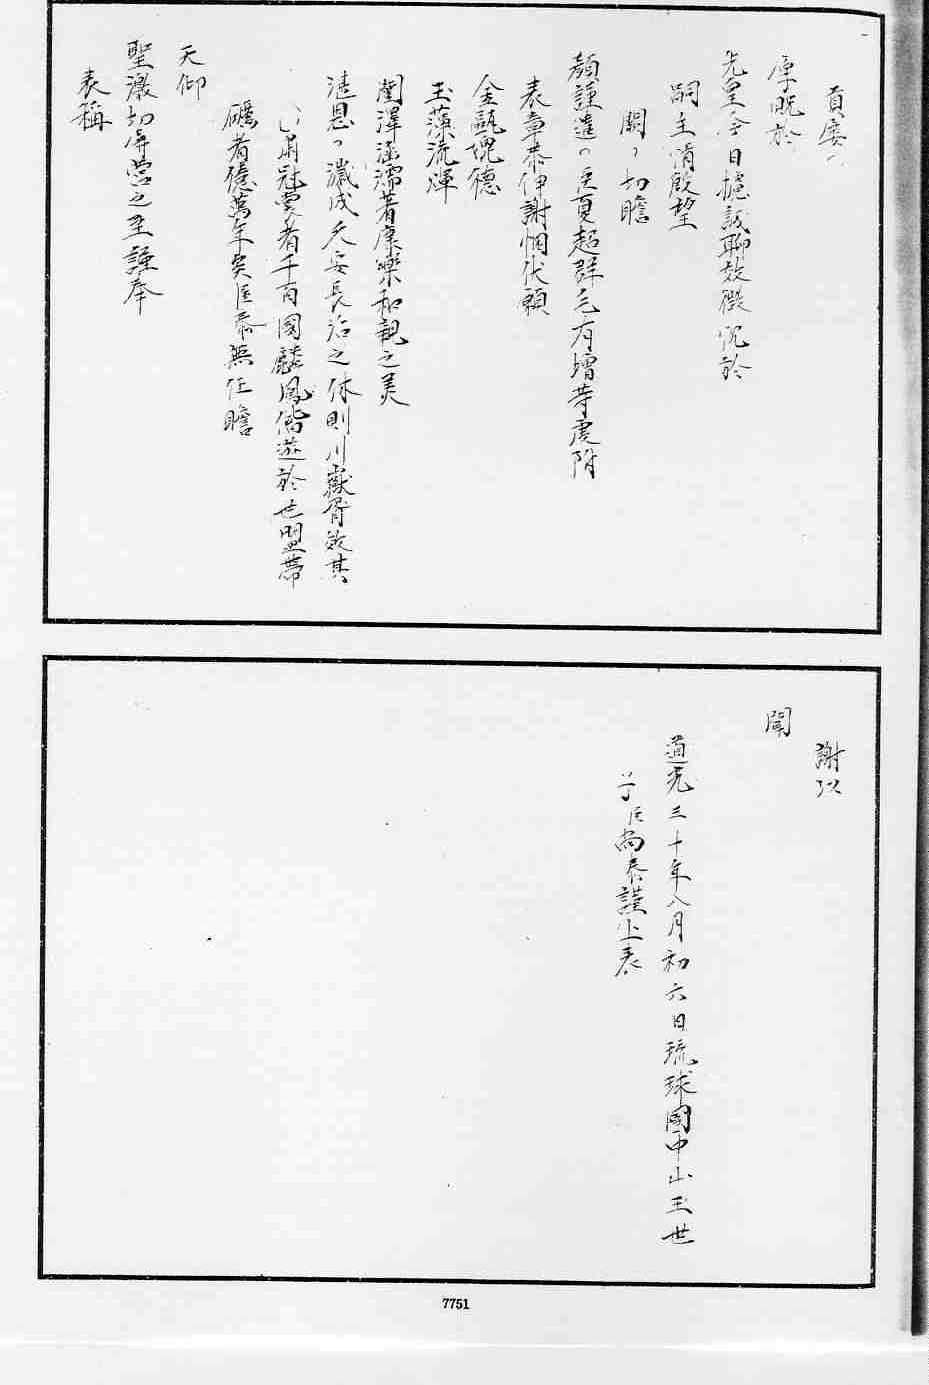 貢
厚貺於
先皇今日攄誠聊效微忱於
嗣主清殿望
闕切瞻
顏謹遣夏超群毛有增等虔附
表章恭伸謝悃伏願
金甌佩德
玉藻流輝
闓澤涵濡著康樂和親之美
湛恩濊成久安長治之休則川嶽胥效其
冠裳者千百國麟鳳偕遊於世盟帶
礪者億萬年矣臣泰無任瞻
天仰
聖激切屏營之至謹奉
表稱
謝以
聞
道光三十年八月初六日琉球國中山王世
子臣尚泰謹上表
7751